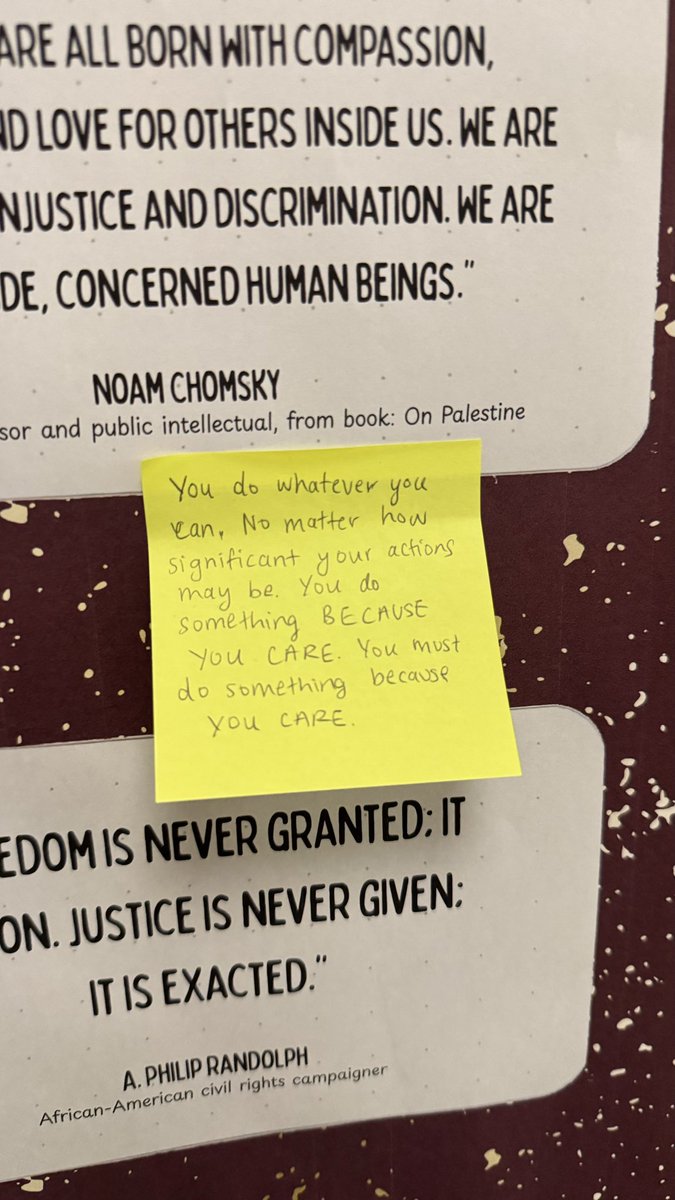 ARE ALL BORN WITH COMPASSION,
ND LOVE FOR OTHERS INSIDE US. WE ARE
NJUSTICE AND DISCRIMINATION. WE ARE
DE, CONCERNED HUMAN BEINGS."
NOAM CHOMSKY
sor and public intellectual, from book: On Palestine
You do whatever you
can, No matter how
significant your actions
may be. You do
something BECAUSE
YOU CARE. You must
do something because
YOU CARE.
EDOM IS NEVER GRANTED; IT
ON. JUSTICE IS NEVER GIVEN;
IT IS EXACTED."
A. PHILIP RANDOLPH
African-American civil rights campaigner